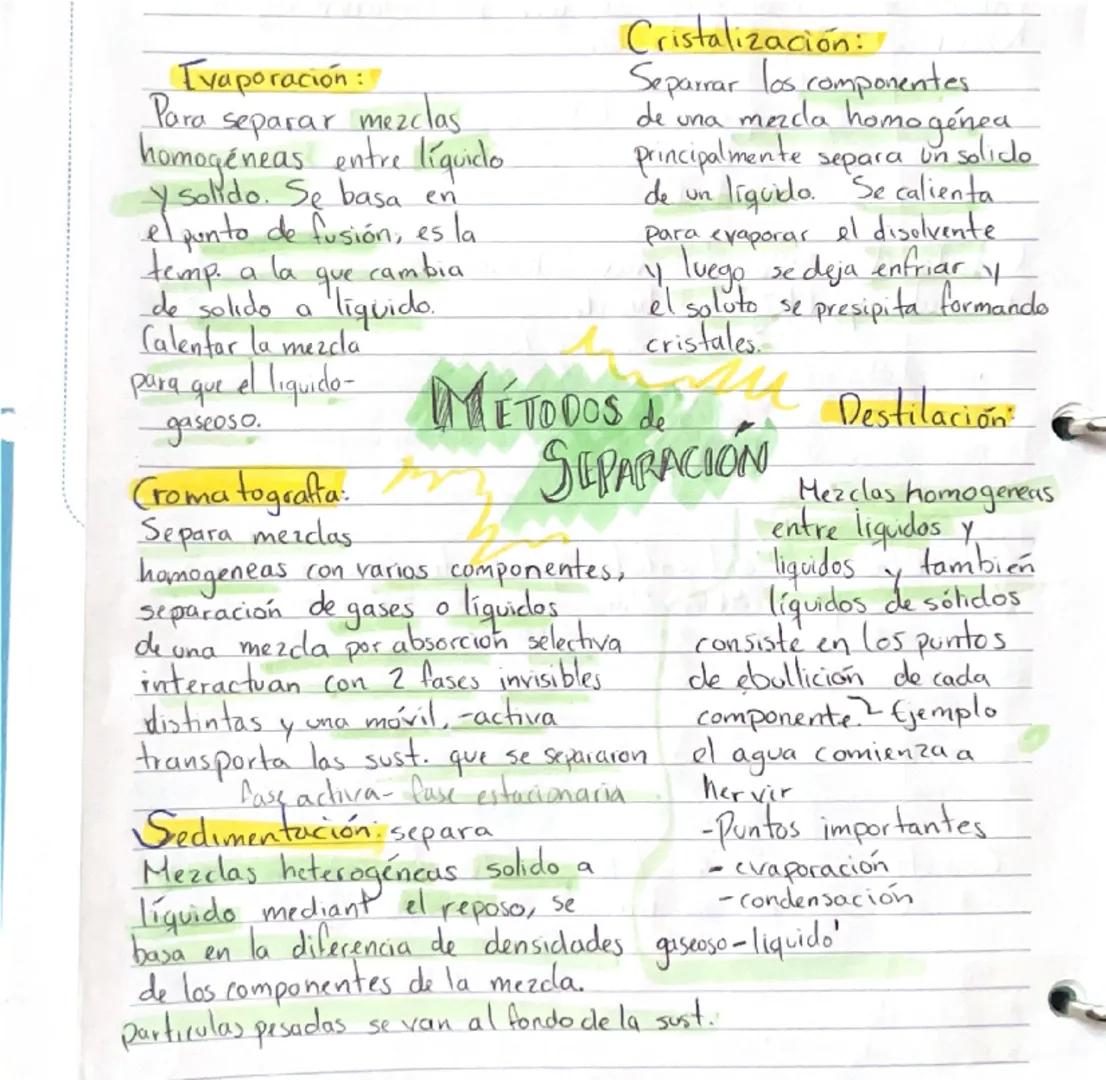 Evaporación:
Para separar mezclas
homogéneas entre líquido
y solido. Se basa en
el punto de fusión, es la
temp. a la que cambia
de solido a líquido.
Calentar la mezcla
para que el liquido-
gaseoso.
Cristalización:
Separrar los componentes
de una mezcla homogénea
principalmente separa un solido
de un líquido. Se calienta
para evaporar el disolvente
y luego se deja enfriar y
el soluto se presipita formando
cristales.
MÉTODOS de
SEPARACIÓN
Cromatografía:
Separa mezclas
homogeneas con varios componentes,
separación de gases o líquidos
de una mezcla por absorción selectiva
interactuan con 2 fases invisibles
distintas y una móvil, -activa
transporta las sust. que se separaron
fase activa- fase estacionaria
Destilación:
Mezclas homogeneas
entre liquidos y
liquidos y también
líquidos de sólidos
consiste en los puntos
de ebullición de cada
componente. Ejemplo
el agua comienza a
hervir
-Puntos importantes
- evaporación
- condensación
gaseoso-liquido'
Sedimentación: separa
Mezclas heterogéneas solido a
líquido mediant el reposo, se
basa en la diferencia de densidades
de los componentes de la mezcla.
particulas pesadas se van al fondo de la sust.